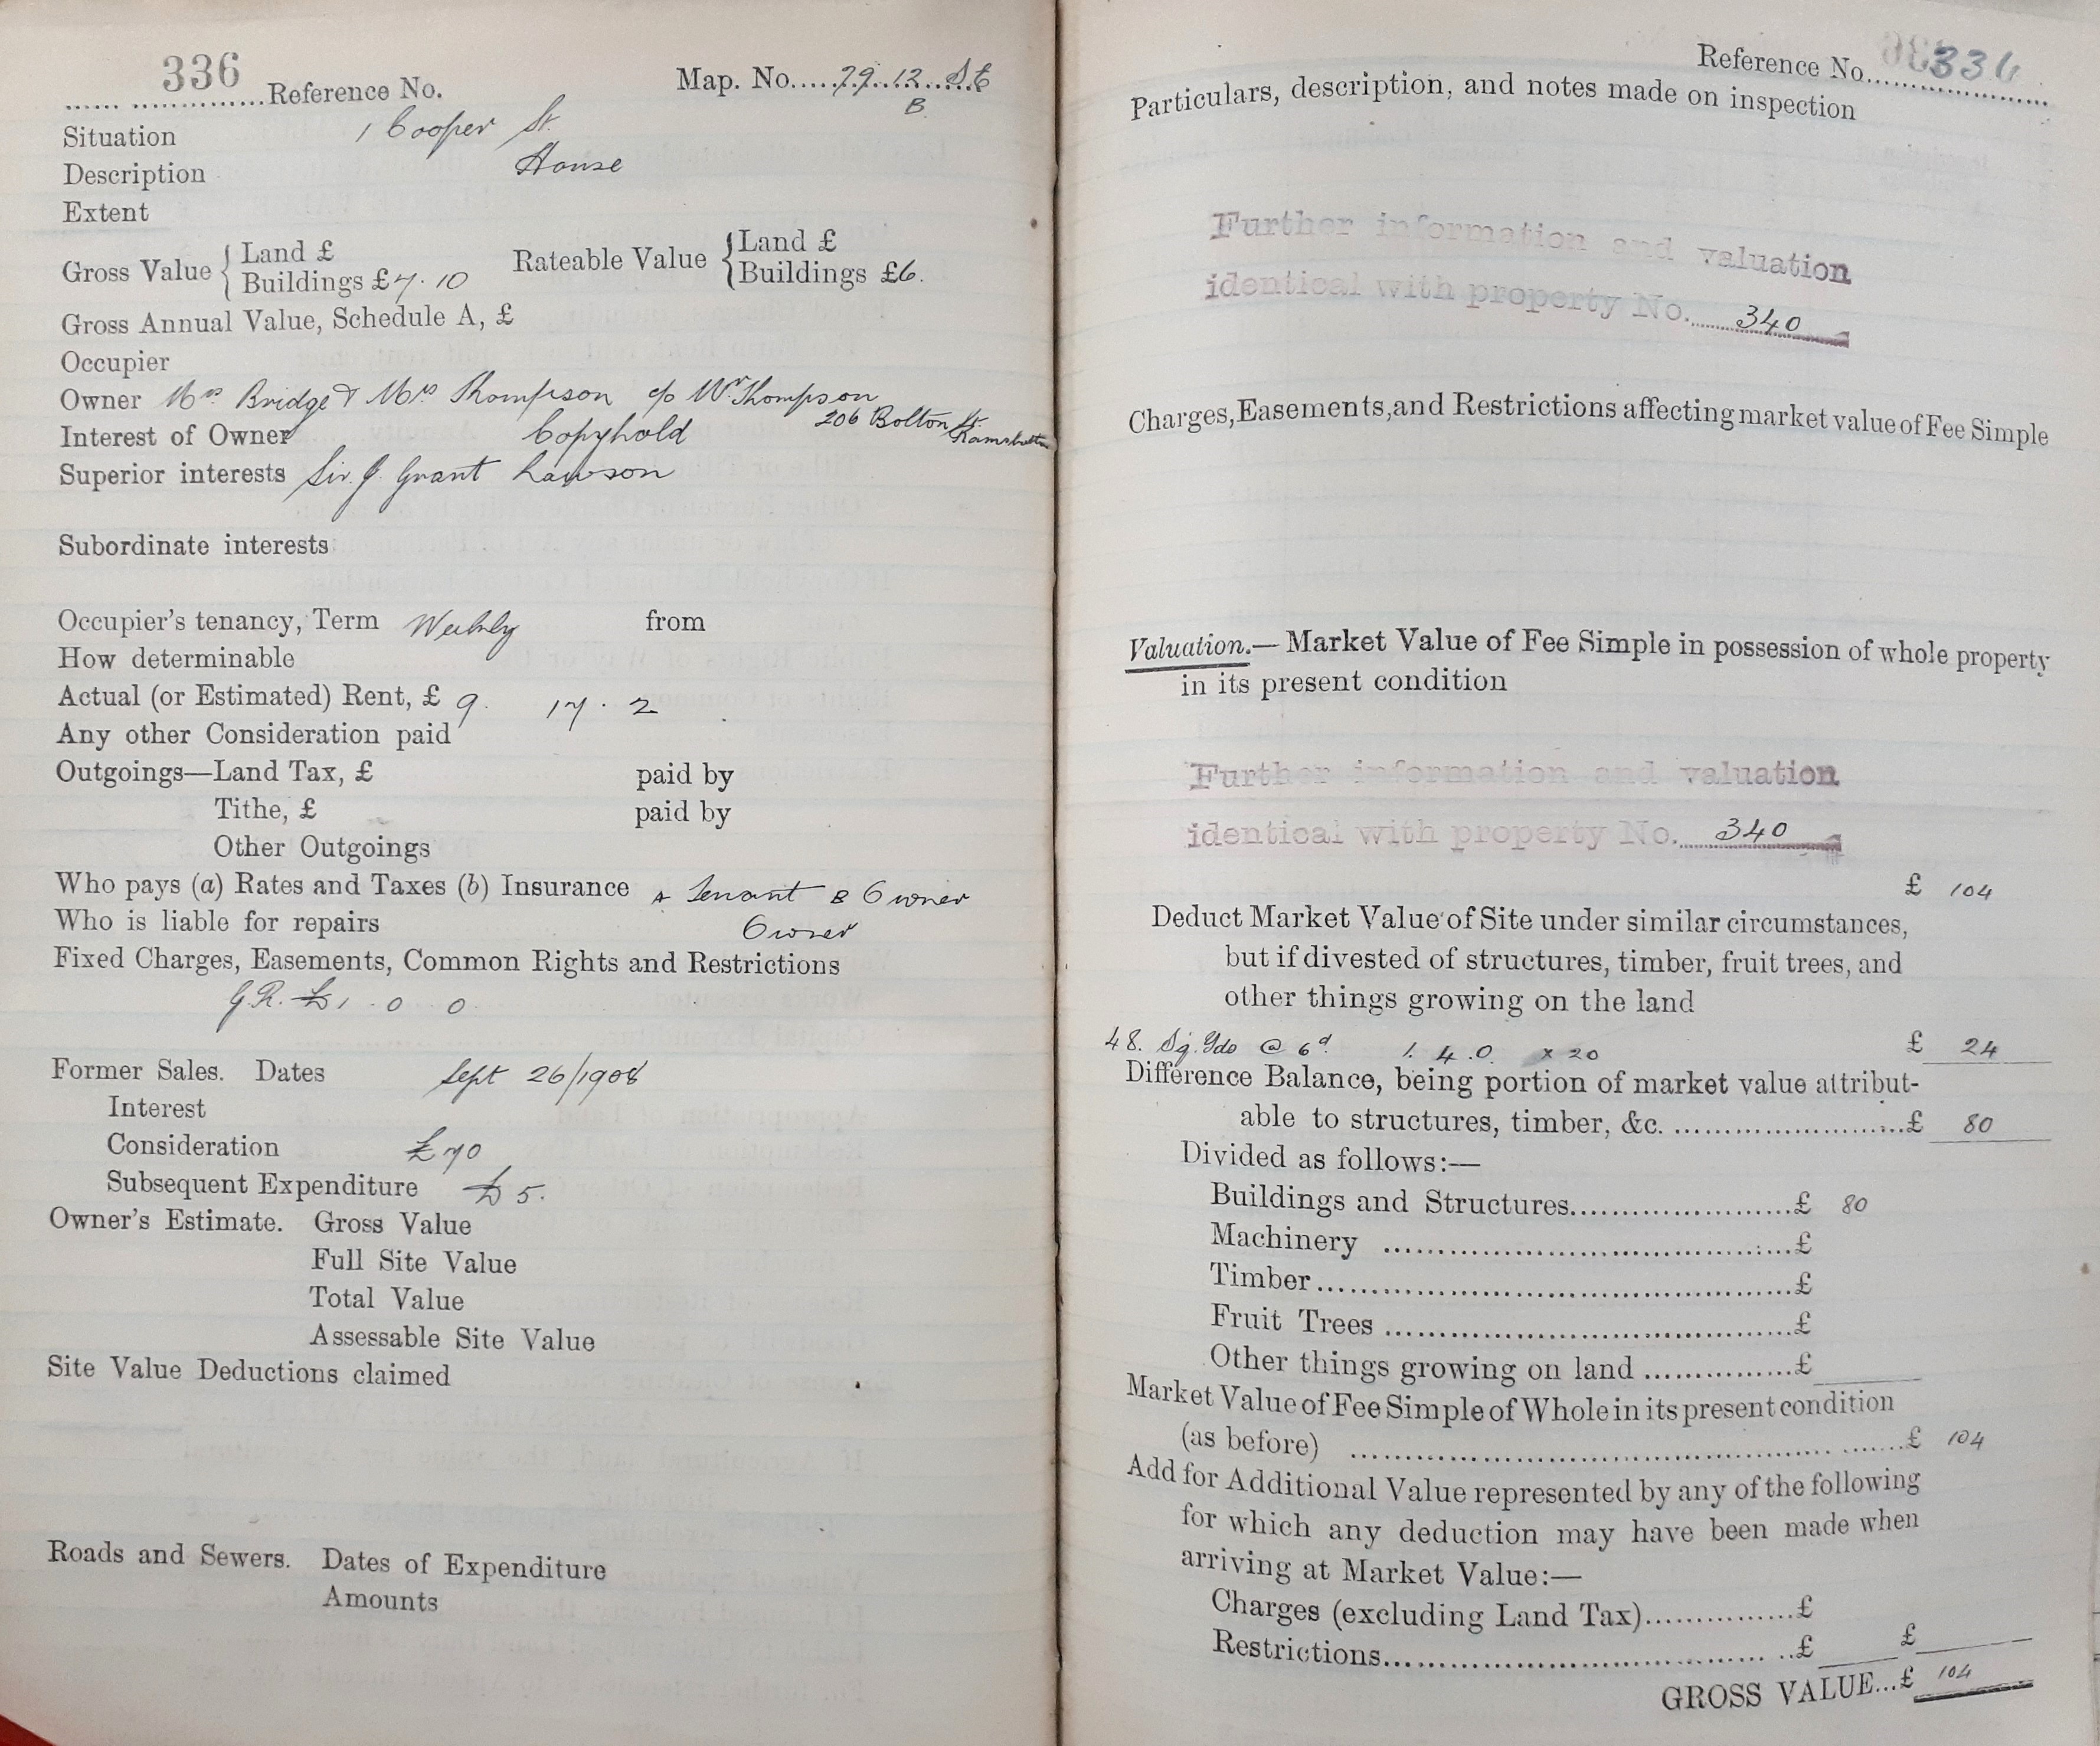 336 Reference No. Map. No. 79.12. S.E
B.
Situation 1 Cooper St.
Description House
Extent
Gross Value { Land £
Buildings £7.10
Rateable Value { Land £
Buildings £6.
Gross Annual Value, Schedule A, £
Occupier
Owner Mrs Bridge & Mrs Thompson c/o Wm Thompson
206 Bolton St.
Ramsbottom
Interest of Owner Copyhold
Superior interests Sir J. Grant Lawson
Subordinate interests
Occupier's tenancy, Term Weekly from
How determinable
Actual (or Estimated) Rent, £ 9. 17. 2
Any other Consideration paid
Outgoings—Land Tax, £ paid by
Tithe, £ paid by
Other Outgoings
Who pays (a) Rates and Taxes (b) Insurance A Tenant B Owner
Who is liable for repairs Owner
Fixed Charges, Easements, Common Rights and Restrictions
G.R. £1 . 0 0
Former Sales. Dates Sept 26/1908
Interest
Consideration £70
Subsequent Expenditure £5.
Owner's Estimate. Gross Value
Full Site Value
Total Value
Assessable Site Value
Site Value Deductions claimed
Roads and Sewers. Dates of Expenditure
Amounts
Reference No. 336
Particulars, description, and notes made on inspection
Further information and valuation
identical with property No. 340
Charges, Easements, and Restrictions affecting market value of Fee Simple
Valuation.—Market Value of Fee Simple in possession of whole property
in its present condition
Further information and valuation
identical with property No. 340
£ 104
Deduct Market Value of Site under similar circumstances,
but if divested of structures, timber, fruit trees, and
other things growing on the land
48. Sq. Yds @ 6d 1. 4 .0. x 20 £ 24
Difference Balance, being portion of market value attribut-
able to structures, timber, &c. £ 80
Divided as follows:—
Buildings and Structures £ 80
Machinery £
Timber £
Fruit Trees £
Other things growing on land £
Market Value of Fee Simple of Whole in its present condition
(as before) £ 104
Add for Additional Value represented by any of the following
for which any deduction may have been made when
arriving at Market Value:—
Charges (excluding Land Tax) £
Restrictions £ £
GROSS VALUE...£ 104